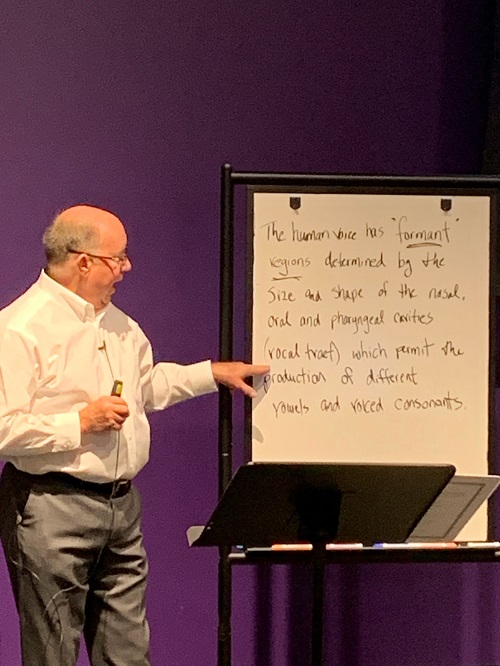 The human voice has "formant"
regions determined by the
size and shape of the nasal,
oral and pharyngeal cavities
(vocal tract) which permit the
production of different
vowels and voiced consonants.